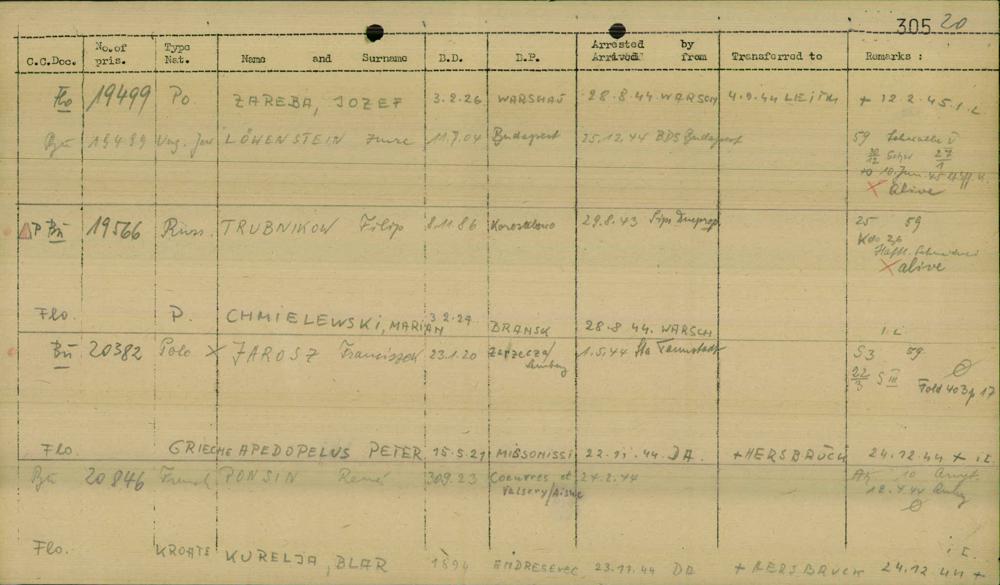 305 20
C.C.Doc. No.of pris. Type Nat. Name and Surname B.D. D.P. Arrested Arrived by from Transferred to Remarks :
Flo 19499 Po. ZAREBA, JOZEF 3.2.26 WARSHAU 28.8.44 WARSCH 4.9.44 LEITM + 12.2.45.i.L
Bu 19499 Ung. Jew LÖWENSTEIN 11.7.04 Budapest 25.12.44 BDS Budapest 59
alive
P Bu 19566 Russ. TRUBNIKOW Filip 8.11.86 29.8.43 Sipo Dneprop. 25 59
Kdo 26
Häftl. Schneiderei
X alive
Flo. P. CHMIELEWSKI, MARIAN 3.2.24 BRANSK 28.8 44. WARSCH i L
Bu 20382 Pole X JAROSZ Franciszek 23.1.20 Zarzecze 1.5.44 Sta 53 59
22/3 S III Fold 403 p 17
Flo. GRIECHE APEDOPELUS PETER 15.5.21 MISSONISSI 22.11.44 DA. + HERSBRUCK 24.12.44 + i L
Bu 20846 French PONSIN René 30.9.23 Coeuvres et Valsery/Aisne 24.2.44
Flo. KROATE KURELJA, BLAR 1894 ENDRESEVEC 23.11.44 DA + HERSBRUCK 24.12.44 +
i L.